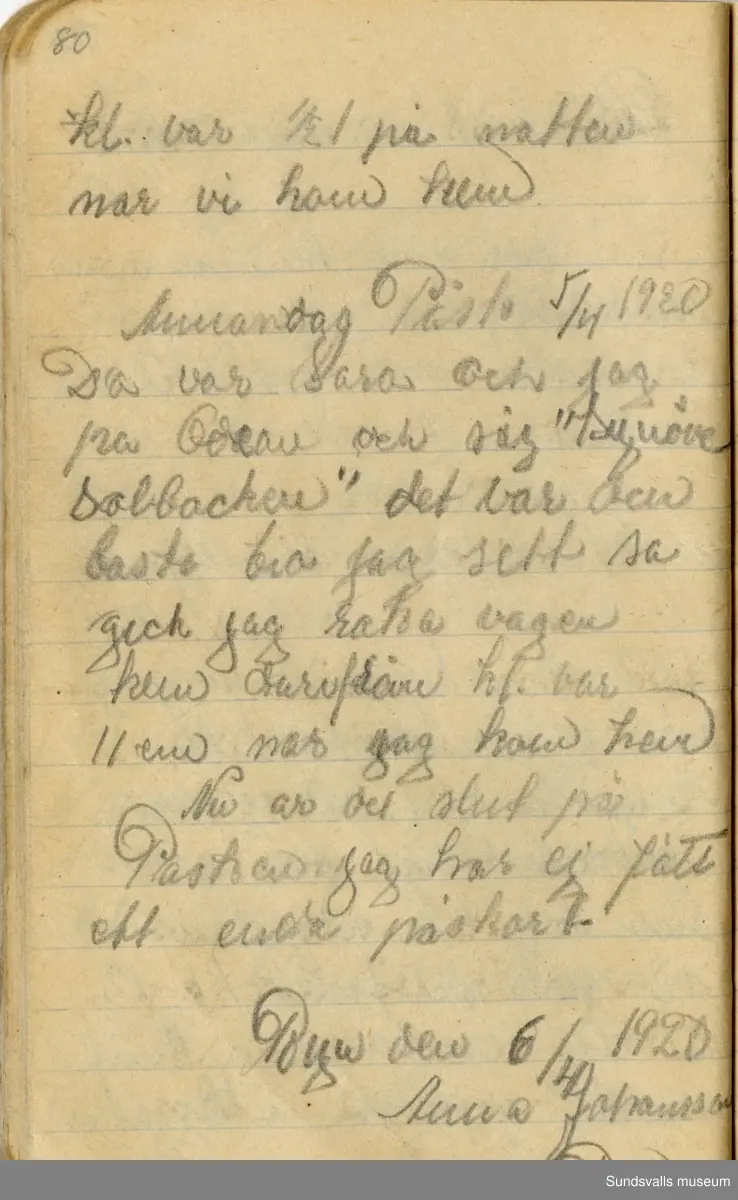 80
kl. var ½1 på natten
nar vi kom hem
Annandag Påsk 5/4 1920
Da var Sara och jag
pa Odean och såg "Synöve
Solbacken" det var den
basta bio jag sett sa
gick jag raka vagen
hem darifrån kl. var
11 em nar jag kom hem
Nu ar det slut på
Pasken jag har ej fått
ett enda påskort
den 6/4 1920
Anna Johansson
Sundsvalls museum